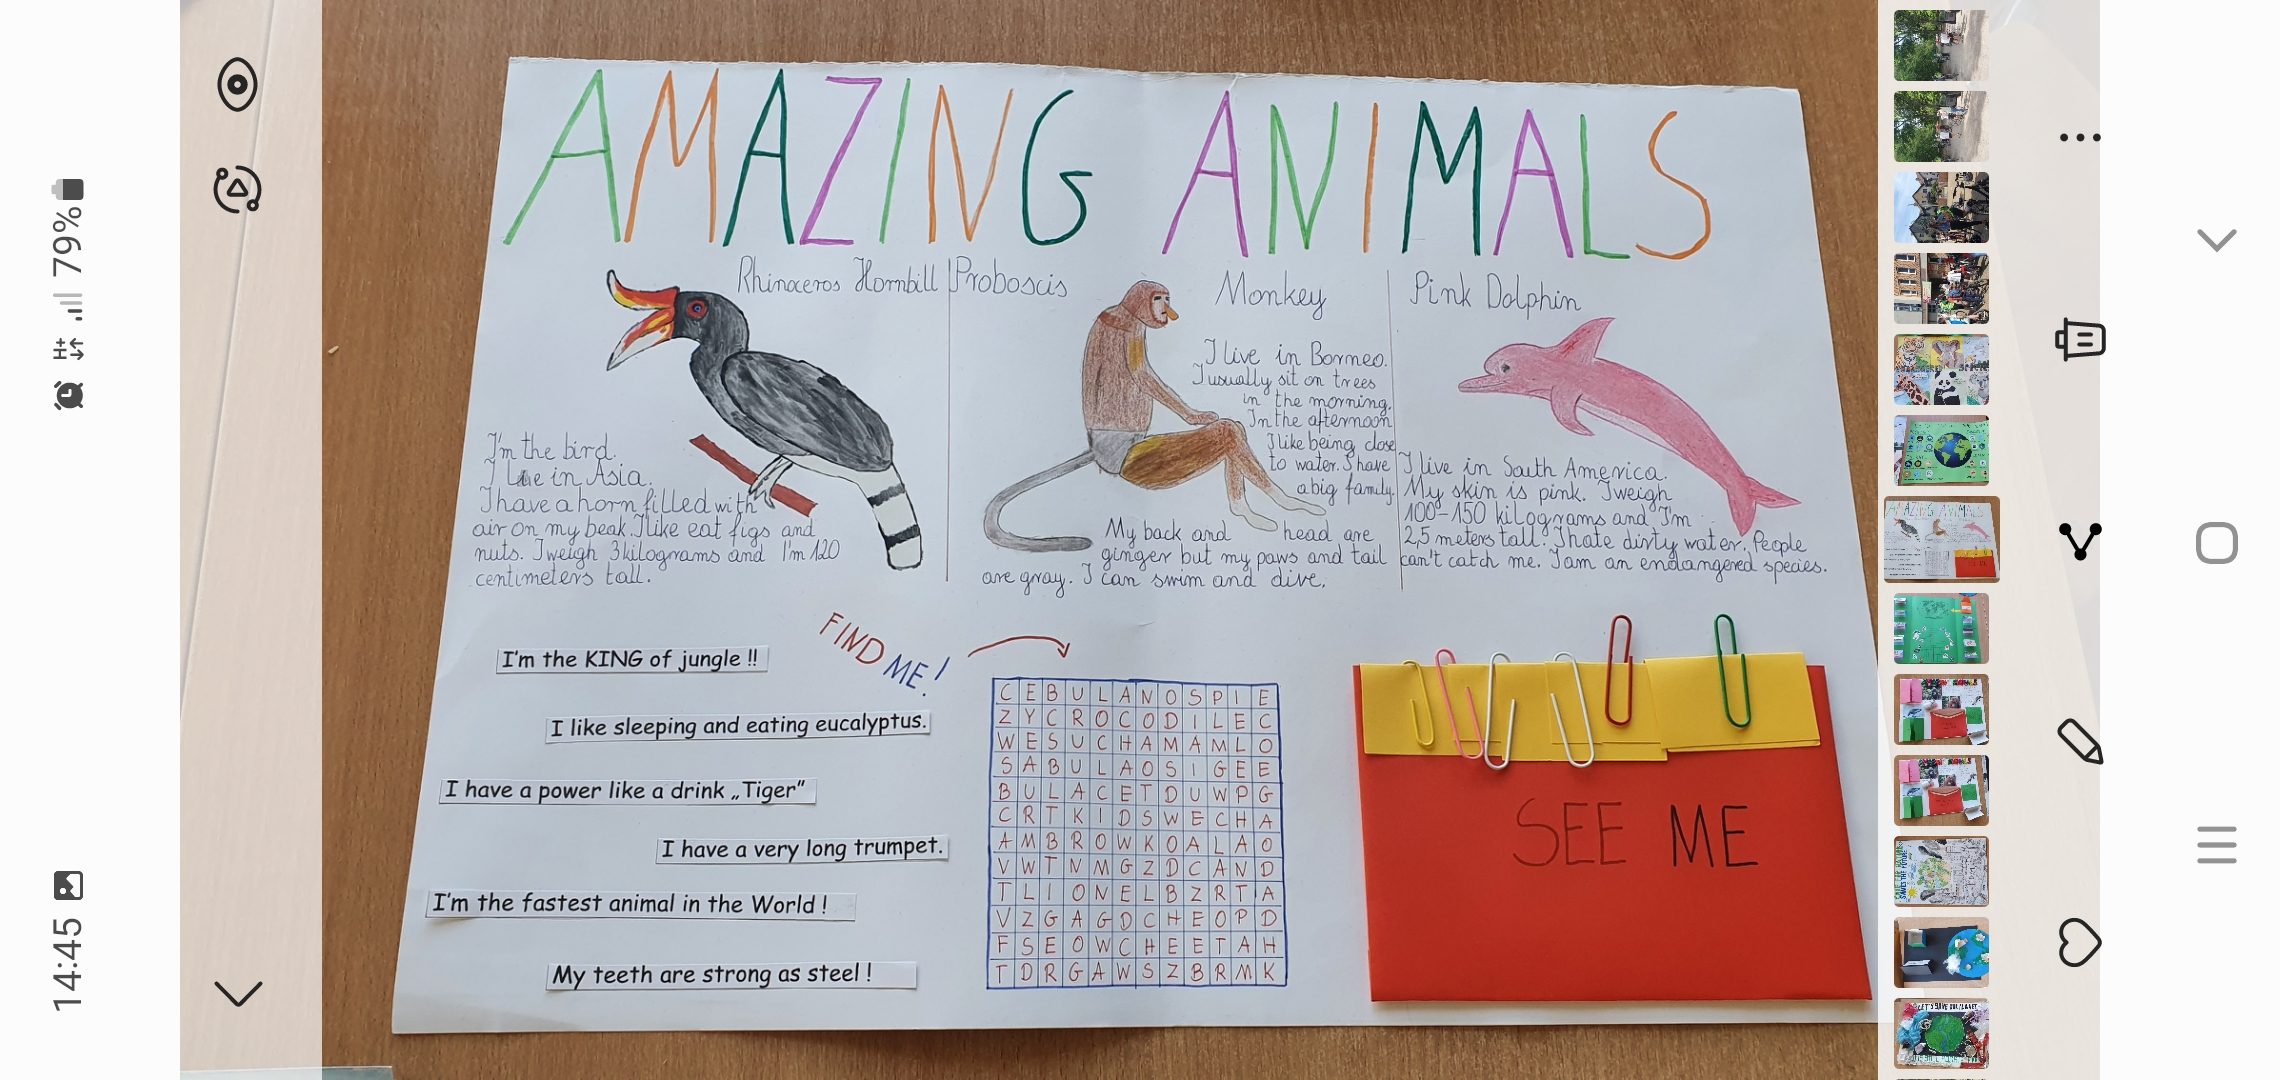 AMAZING ANIMALS
Rhinoceros Hornbill
I'm the bird.
I live in Asia.
I have a horn filled with
air on my beak. I like eat figs and
nuts. I weigh 3 kilograms and I'm 120
centimeters tall.
Proboscis Monkey
I live in Borneo.
I usually sit on trees
in the morning.
In the afternoon
I like being close
to water. I have
a big family.
My back and head are
ginger but my paws and tail
are gray. I can swim and dive.
Pink Dolphin
I live in South America.
My skin is pink. I weigh
100-150 kilograms and I'm
2,5 meters tall. I hate dirty water. People
can't catch me. I am an endangered species.
I'm the KING of jungle !!
I like sleeping and eating eucalyptus.
I have a power like a drink „Tiger”
I have a very long trumpet.
I'm the fastest animal in the World !
My teeth are strong as steel !
FIND ME!
C E B U L A N O S P I E
Z Y C R O C O D I L E C
W E S U C H A M A M L O
S A B U L A O S I G E E
B U L A C E T D U W P G
C R T K I D S W E C H A
A M B R O W K O A L A O
V W T N M G Z D C A N D
T L I O N E L B Z R T A
V Z G A G D C H E O P D
F S E O W C H E E T A H
T D R G A W S Z B R M K
SEE ME
14:45
79%